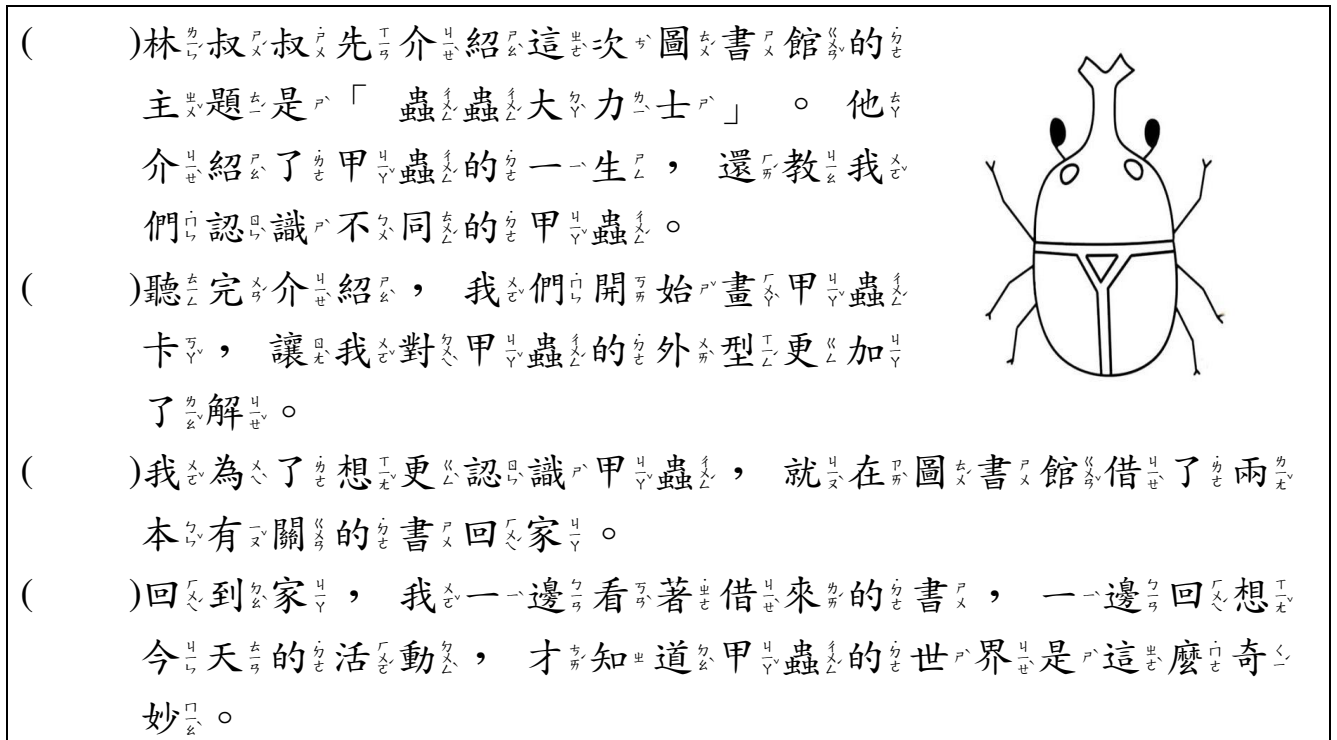 (　　)林叔叔先介紹這次圖書館的
主題是「蟲蟲大力士」。他
介紹了甲蟲的一生，還教我
們認識不同的甲蟲。
(　　)聽完介紹，我們開始畫甲蟲
卡，讓我對甲蟲的外型更加
了解。
(　　)我為了想更認識甲蟲，就在圖書館借了兩
本有關的書回家。
(　　)回到家，我一邊看著借來的書，一邊回想
今天的活動，才知道甲蟲的世界是這麼奇
妙。